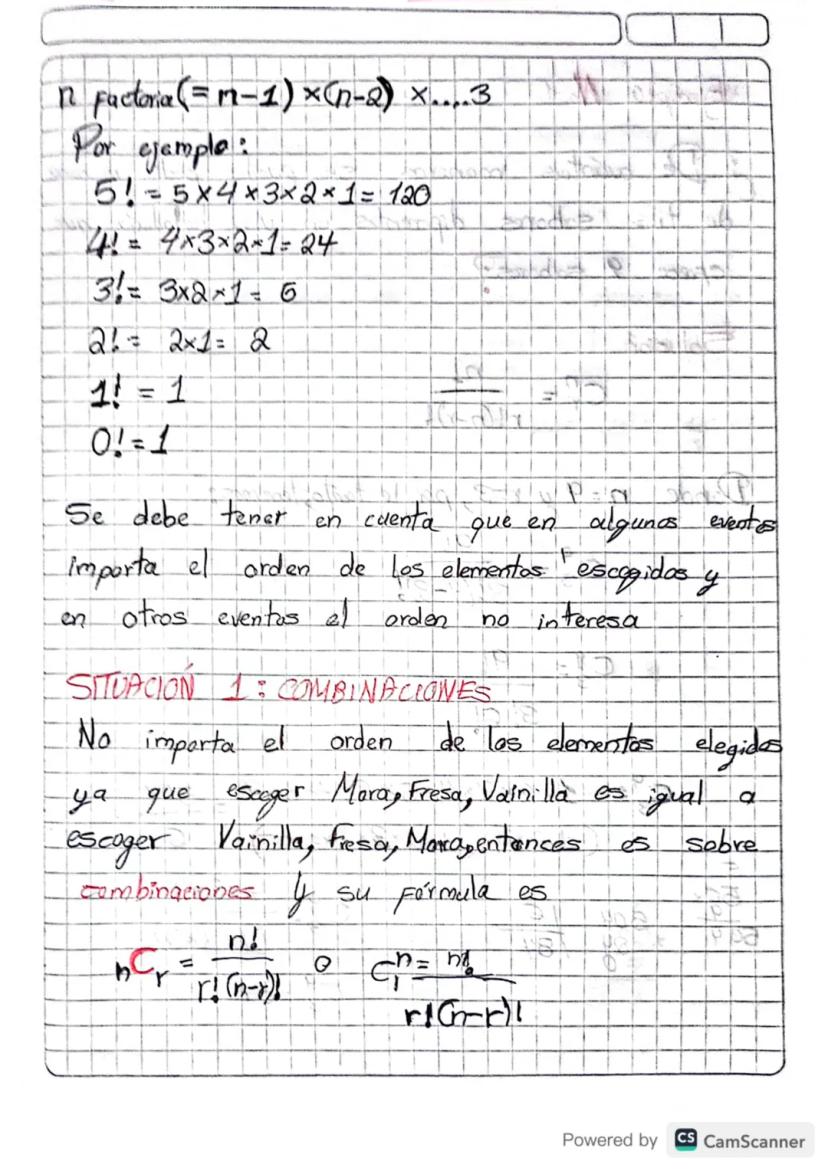 n factoria(= n-1) ×(n-2) ×....3
Por ejemplo:
5! = 5×4×3×2×1= 120
4! = 4×3×2×1= 24
3! = 3×2×1= 6
2! = 2×1= 2
1! = 1
0! = 1
Se debe tener en cuenta que en algunos eventos
importa el orden de los elementos escogidos y
en otros eventos el orden no interesa
SITUACIÓN 1: COMBINACIONES
No importa el orden de los elementos elegidos
ya que escoger Mora, Fresa, Vainilla es igual a
escoger Vainilla, fresa, Mora, entonces es sobre
combinaciones y su fórmula es
nCr = n! / r!(n-r)! o C n = n! / r!(n-r)!
Powered by CS CamScanner